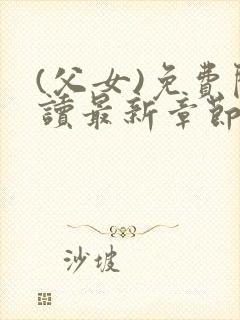 (父女)免費
讀最新章節
沙坡